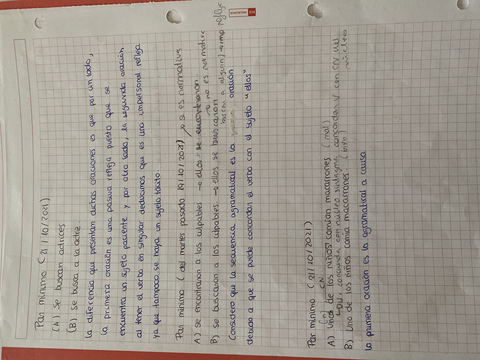 Par mínimo (21/10/2021)
(A) Se buscan actrices
(B) Se busca a la actriz
La diferencia que presentan dichas oraciones es que por un lado,
la primera oración es una pasiva refleja puesto que se
encuentra un sujeto paciente y por otro lado, la segunda oración
al tener el verbo en singular deducimos que es una impersonal refleja
ya que tampoco se haya un sujeto tácito.
Par mínimo (del martes pasado 19/10/2021) si es normativa
A) se encontraron a los culpables → ellos se encontraron
no es normativa
B) se buscaron a los culpables → ellos se buscaron
Considero que la secuencia agramatical es la oración
debido a que se puede concordar el verbo con el sujeto "ellos"
Par mínimo (21/10/2021)
A) Uno de los niños comían macarrones (mal
concuerda con
núcleo
B) Uno de los niños comía macarrones (bien
La primera oración es la agramatical a causa